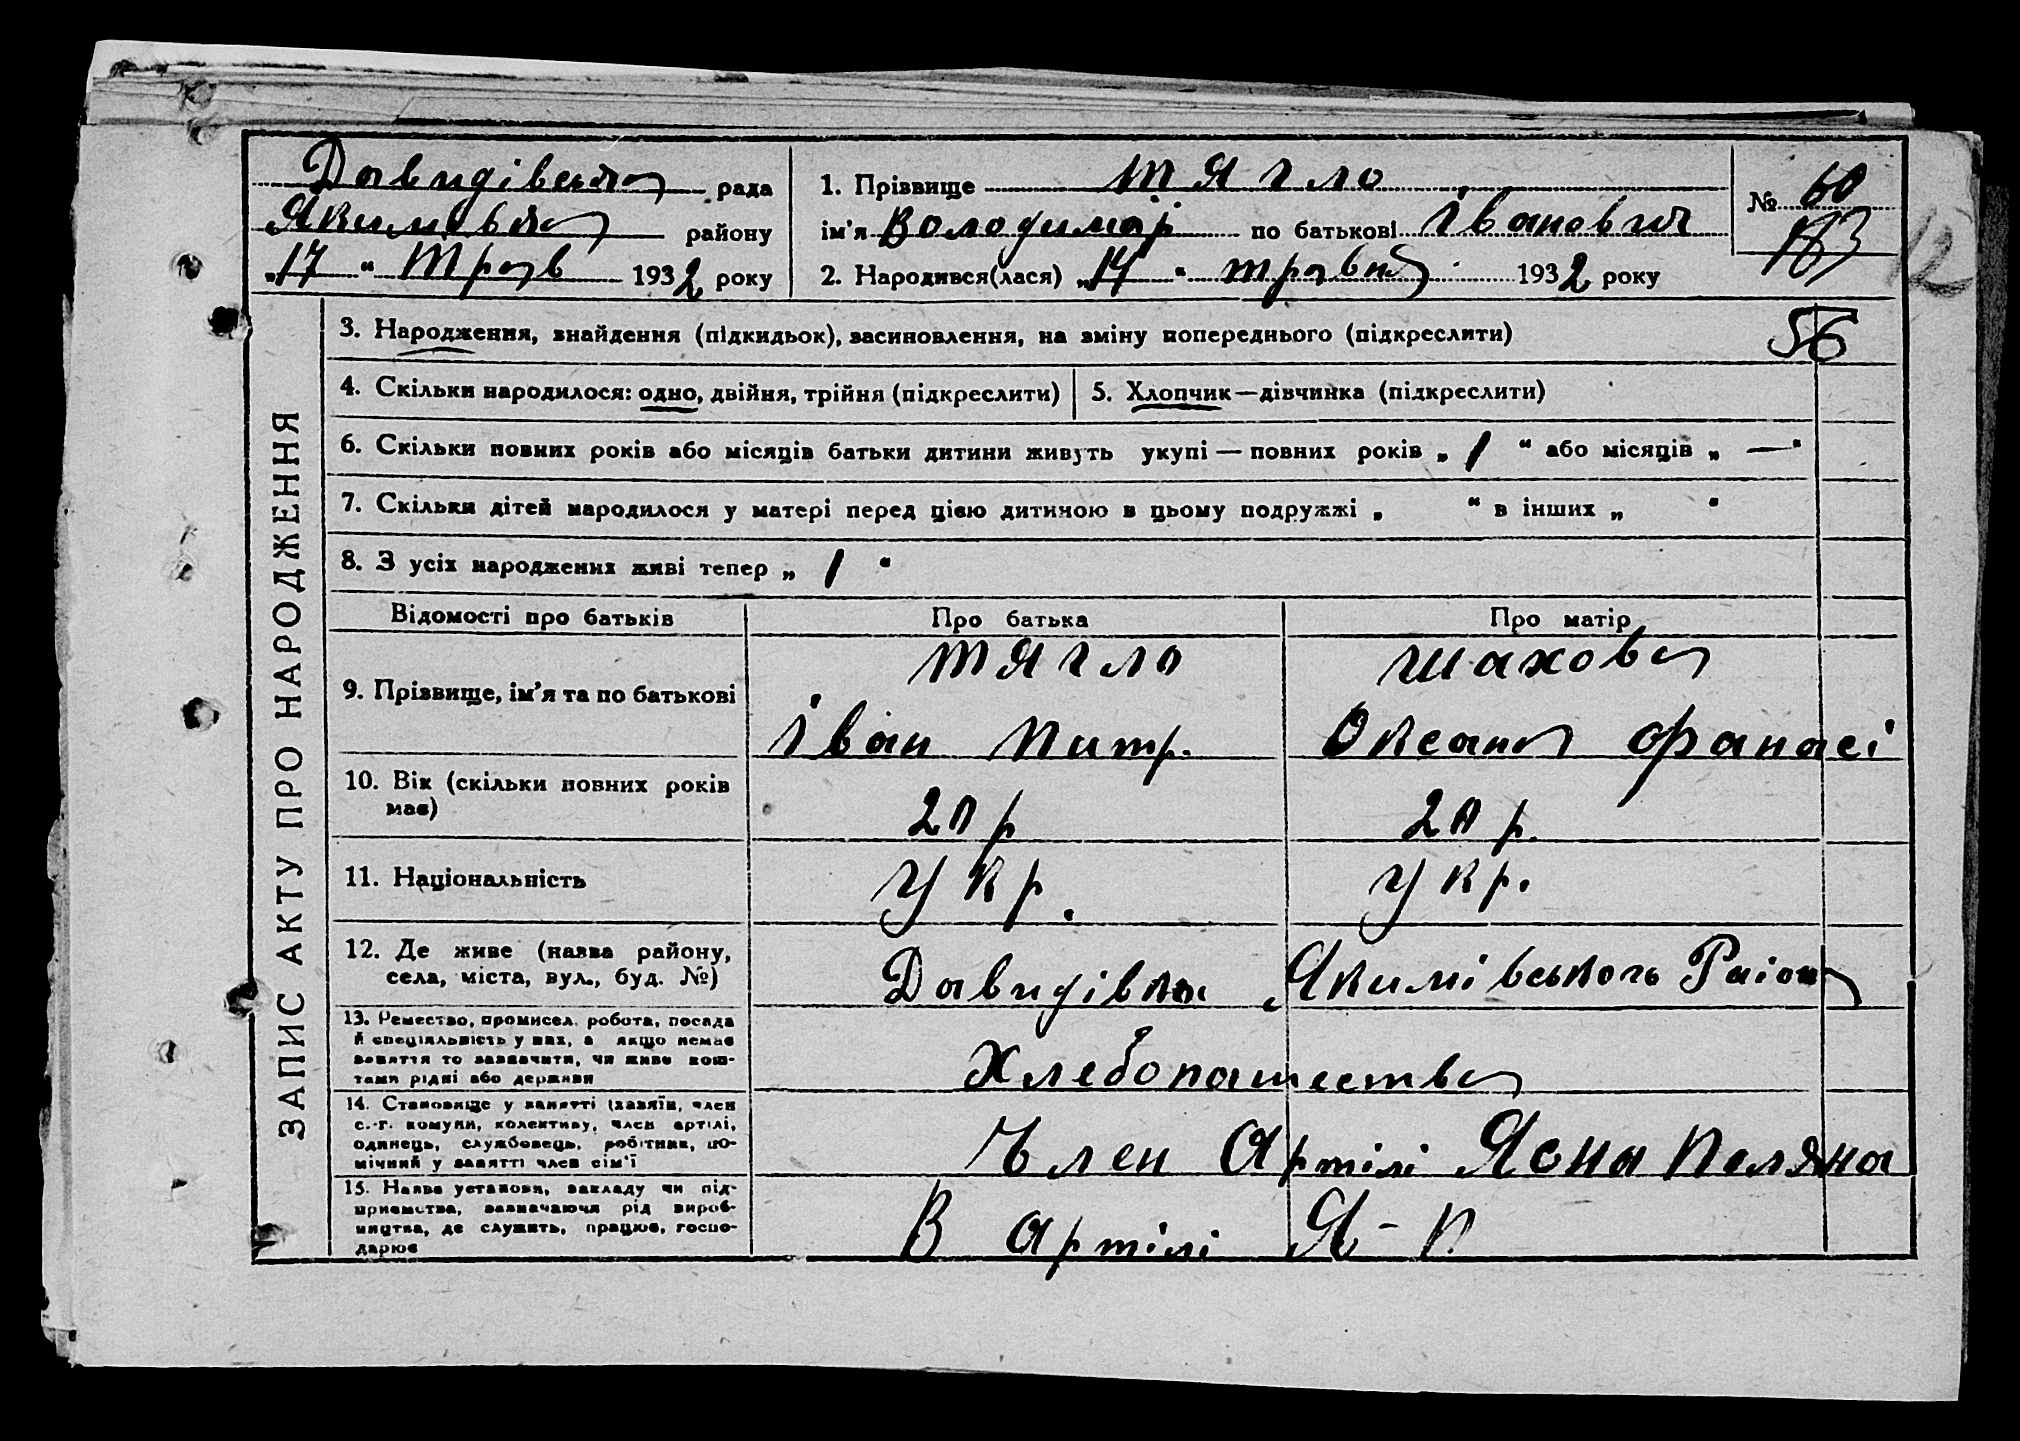 Давидівська рада
Якимівськ району
„17“ Трав 1932 року
1. Прізвище Тягло
ім'я Володимір по батькові Іванович
2. Народився(лася) „14“ травня 1932 року
№ 60
183
12
56
ЗАПИС АКТУ ПРО НАРОДЖЕННЯ
3. Народження, знайдення (підкидьок), засиновлення, на зміну попереднього (підкреслити)
4. Скільки народилося: одно, двійня, трійня (підкреслити)
5. Хлопчик—дівчинка (підкреслити)
6. Скільки повних років або місяців батьки дитини живуть укупі — повних років „ 1 “ або місяців „ — “
7. Скільки дітей народилося у матері перед цією дитиною в цьому подружжі „ “ в інших „ “
8. З усіх народжених живі тепер „ 1 “
Відомості про батьків Про батька Про матір
9. Прізвище, ім'я та по батькові
Тягло Шахова
Іван Питр. Оксана Фанасі
10. Вік (скільки повних років
має)
20 р 20 р.
11. Національність Укр. Укр.
12. Де живе (назва району,
села, міста, вул., буд. №)
Давидівка Якимівського Район
13. Ремество, промисел, робота, посада
й спеціяльність у них, а якщо немає
заняття то зазначити, чи живе кош-
тами рідні або держави
Хлебопашества
14. Становище у занятті (хазяїн, член
с.-г. комуни, колективу, член артілі,
одинець, службовець, робітник, по-
мічний у занятті член сім'ї
Член Артілі Ясна Поляна
15. Назва установи, закладу чи під-
приємства, зазначаючи рід вироб-
ництва, де служить, працює, госпо-
дарює
В Артілі Я-П